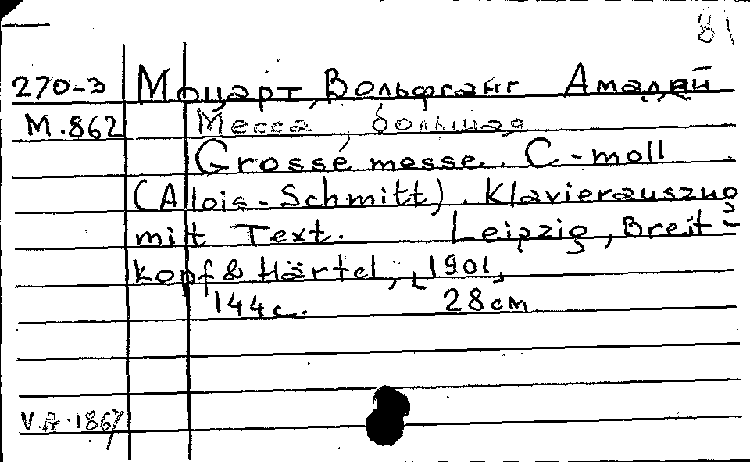 81
270-3 Моцарт, Вольфганг Амадей
М.862 Месса, большая
Grosse messe. C-moll
(Alois-Schmitt). Klavierauszug
mit Text. Leipzig, Breit-
kopf & Härtel, [1901]
144с. 28cm
V.A.1867